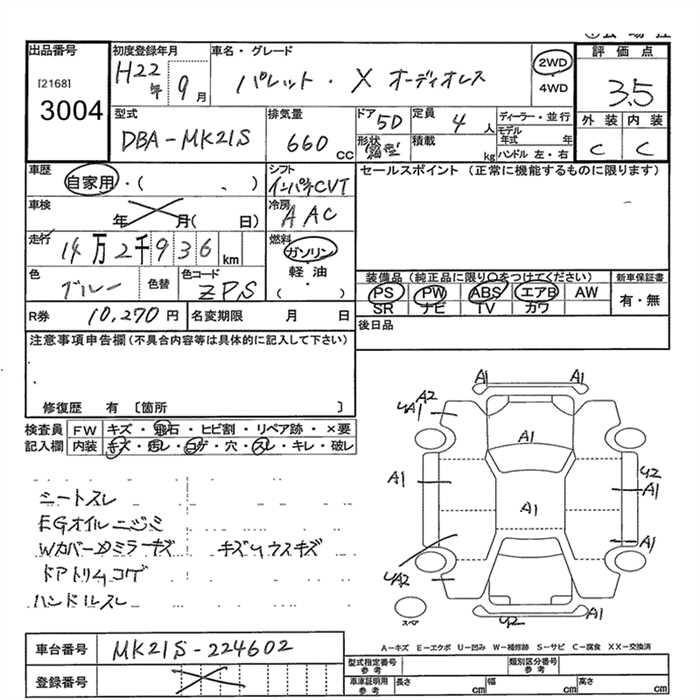 出品番号
[2168]
3004
初度登録年月
H22年 9月
車名・グレード
パレット・X オーディオレス
2WD
4WD
評価点
3.5
外装 内装
C C
型式
DBA-MK21S
排気量
660 CC
ドア 5D
形状 箱型
定員 4人
積載 kg
ディーラー・並行
モデル年式 年
ハンドル 左・右
車歴
自家用・( 、 )
シフト
インパネCVT
セールスポイント (正常に機能するものに限ります)
車検
年 月( 日)
冷房
AAC
走行
14万2千936km
燃料
ガソリン
軽油
( )
色
ブルー
色替
色コード
ZPS
装備品 (純正品に限り○をつけてください)
PS PW ABS エアB AW
SR ナビ TV カワ
新車保証書
有・無
R券 10,270円
名変期限 月 日
後日品
注意事項申告欄(不具合内容等は具体的に記入して下さい)
修復歴 有 〔箇所 〕
検査員記入欄
FW キズ・飛石・ヒビ割・リペア跡・×要
内装 キズ・汚レ・コゲ・穴・スレ・キレ・破レ
シートスレ
EGオイルニジミ
Wカバーカミラーキズ キズUウスキズ
ドアトリムコゲ
ハンドルスレ
A1 A1
A2
UA1 A1
A1
A1
A1
U2
A1
UA2
A1
U2
A1
スペア
車台番号 MK21S-224602
登録番号
A-キズ E-エクボ U-凹み W-補修跡 S-サビ C-腐食 XX-交換済
型式指定番号 参考
類別区分番号 参考
車庫証明用 参考
長さ cm 幅 cm 高さ cm